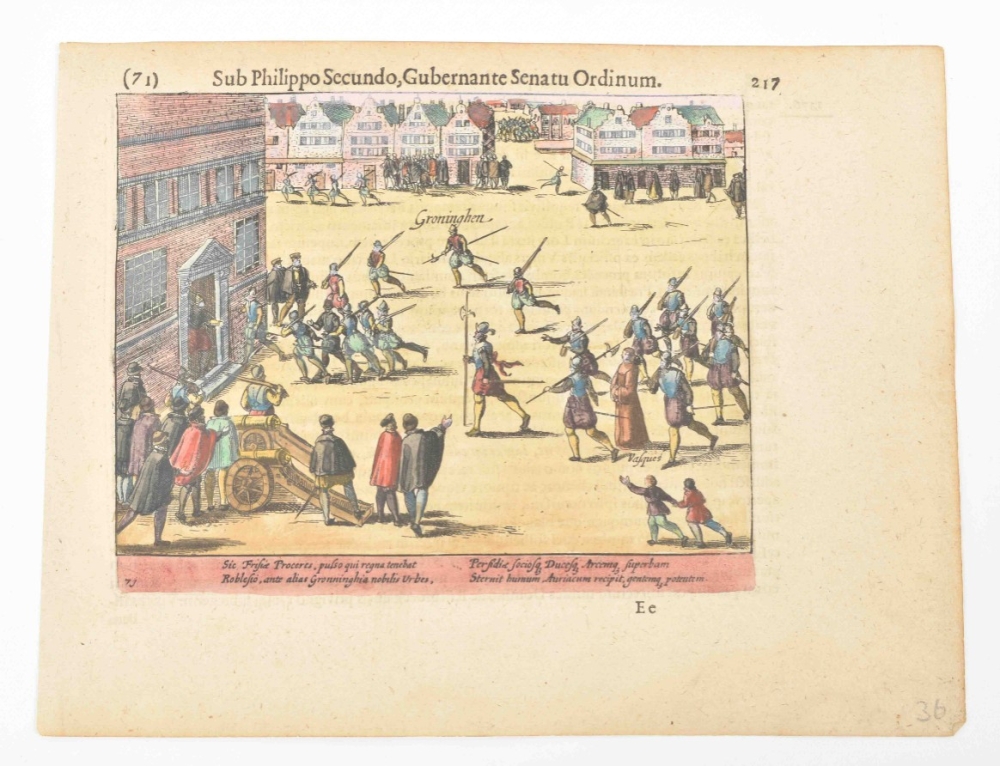 (71) Sub Philippo Secundo, Gubernante Senatu Ordinum. 217
Groninghen
Vasques
Sic Frisiæ Proceres, pulso qui regna tenebat
Roblesio, ante alias Gronninghia nobilis Urbes,
Perfidiæ sociosq Ducesq Arcemq superbam
Sternit humum, Auriacum recipit, gentemq potentem
71
Ee
36